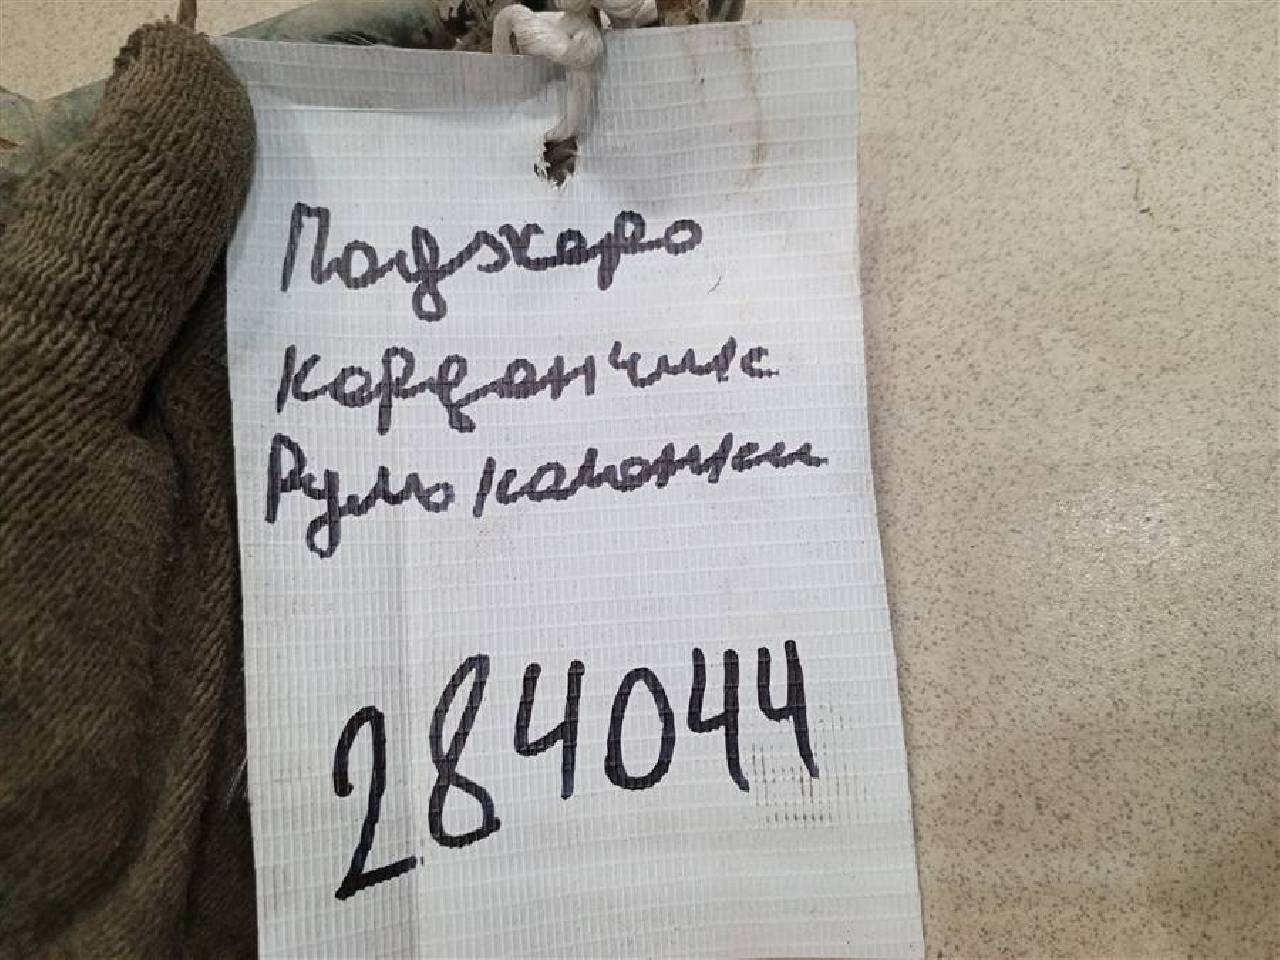 Паджеро
карданчик
Руль колонки
284044